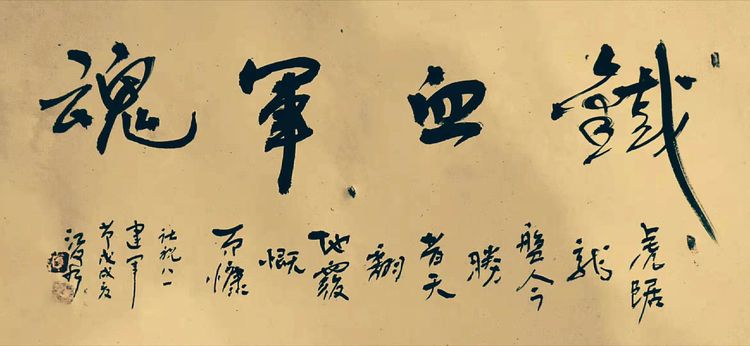 鐵血軍魂
虎踞
龍
盤今
勝
昔天
翻
地覆
慨
而慷
祝八一
建軍
节戊戌